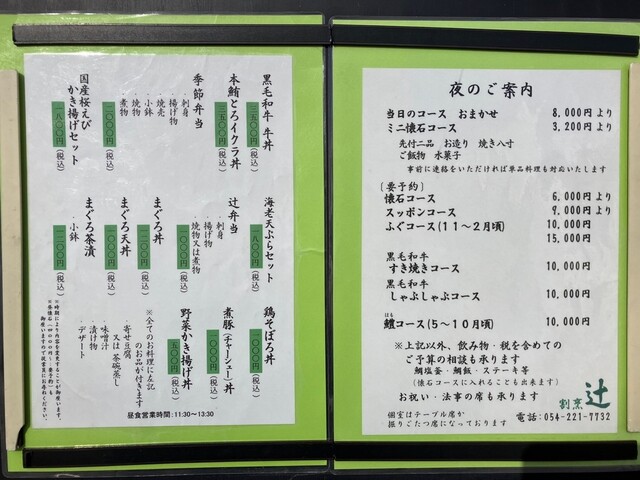 黒毛和牛 牛丼
(税込)
本鮪とろイクラ丼
(税込)
季節弁当
・刺身
・揚げ物
・小鉢
・焼売
・焼物
・煮物
(税込)
国産桜えび
かき揚げセット
一八〇〇円(税込)
海老天ぷらセット
一八〇〇円(税込)
辻弁当
・刺身
・揚げ物
・焼物又は煮物
(税込)
まぐろ丼
(税込)
まぐろ天丼
(税込)
まぐろ茶漬
・小鉢
一二〇〇円(税込)
鶏そぼろ丼
一〇〇〇円(税込)
煮豚(チャーシュー)丼
一〇〇〇円(税込)
野菜かき揚げ丼
(税込)
※全てのお料理に左記
のお品が付きます
・寄せ豆腐
又は 茶碗蒸し
・味噌汁
・漬け物
・デザート
※時期により内容を変更することが御座います。
昼食営業時間:11:30〜13:30
夜のご案内
当日のコース おまかせ 8,000円より
ミニ懐石コース 3,200円より
先付二品 お造り 焼き八寸
ご飯物 水菓子
事前に連絡をいただければ単品料理も対応いたします
〔要予約〕
懐石コース 6,000円より
スッポンコース 9,000円より
ふぐコース(11〜2月頃) 10,000円
15,000円
黒毛和牛
すき焼きコース 10,000円
黒毛和牛
しゃぶしゃぶコース 10,000円
はも
鱧コース(5〜10月頃) 10,000円
※上記以外、飲み物・税を含めての
ご予算の相談も承ります
鯛塩釜・鯛飯・ステーキ等
(懐石コースに入れることも出来ます)
お祝い・法事の席も承ります
個室はテーブル席か
掘りごたつ席になっております
割烹 辻
電話:054-221-7732